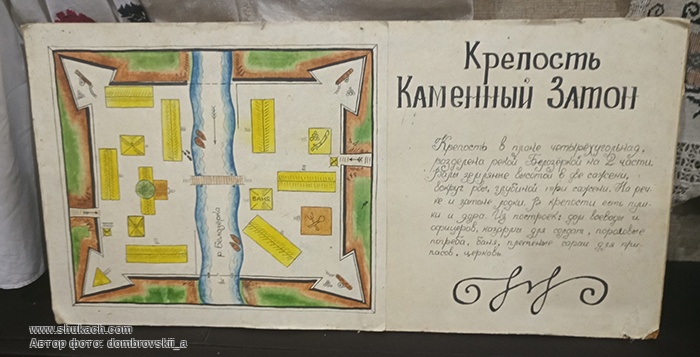 Крепость
Каменный Затон
Крепость в плане четырёхугольная,
разделена рекой Белозёркой на 2 части.
Валы земляные высотой в две сажени,
вокруг рвы, глубиной три сажени. На реч-
ке и затоне лодки. В крепости есть пуш-
ки и ядра. Из построек: дом воеводы и
офицеров, казармы для солдат, пороховые
погреба, баня, плетёные сараи для при-
пасов, церковь.
БАНЯ
р. Белозёрка
www.shukach.com
Автор фото: dombrovskii_a